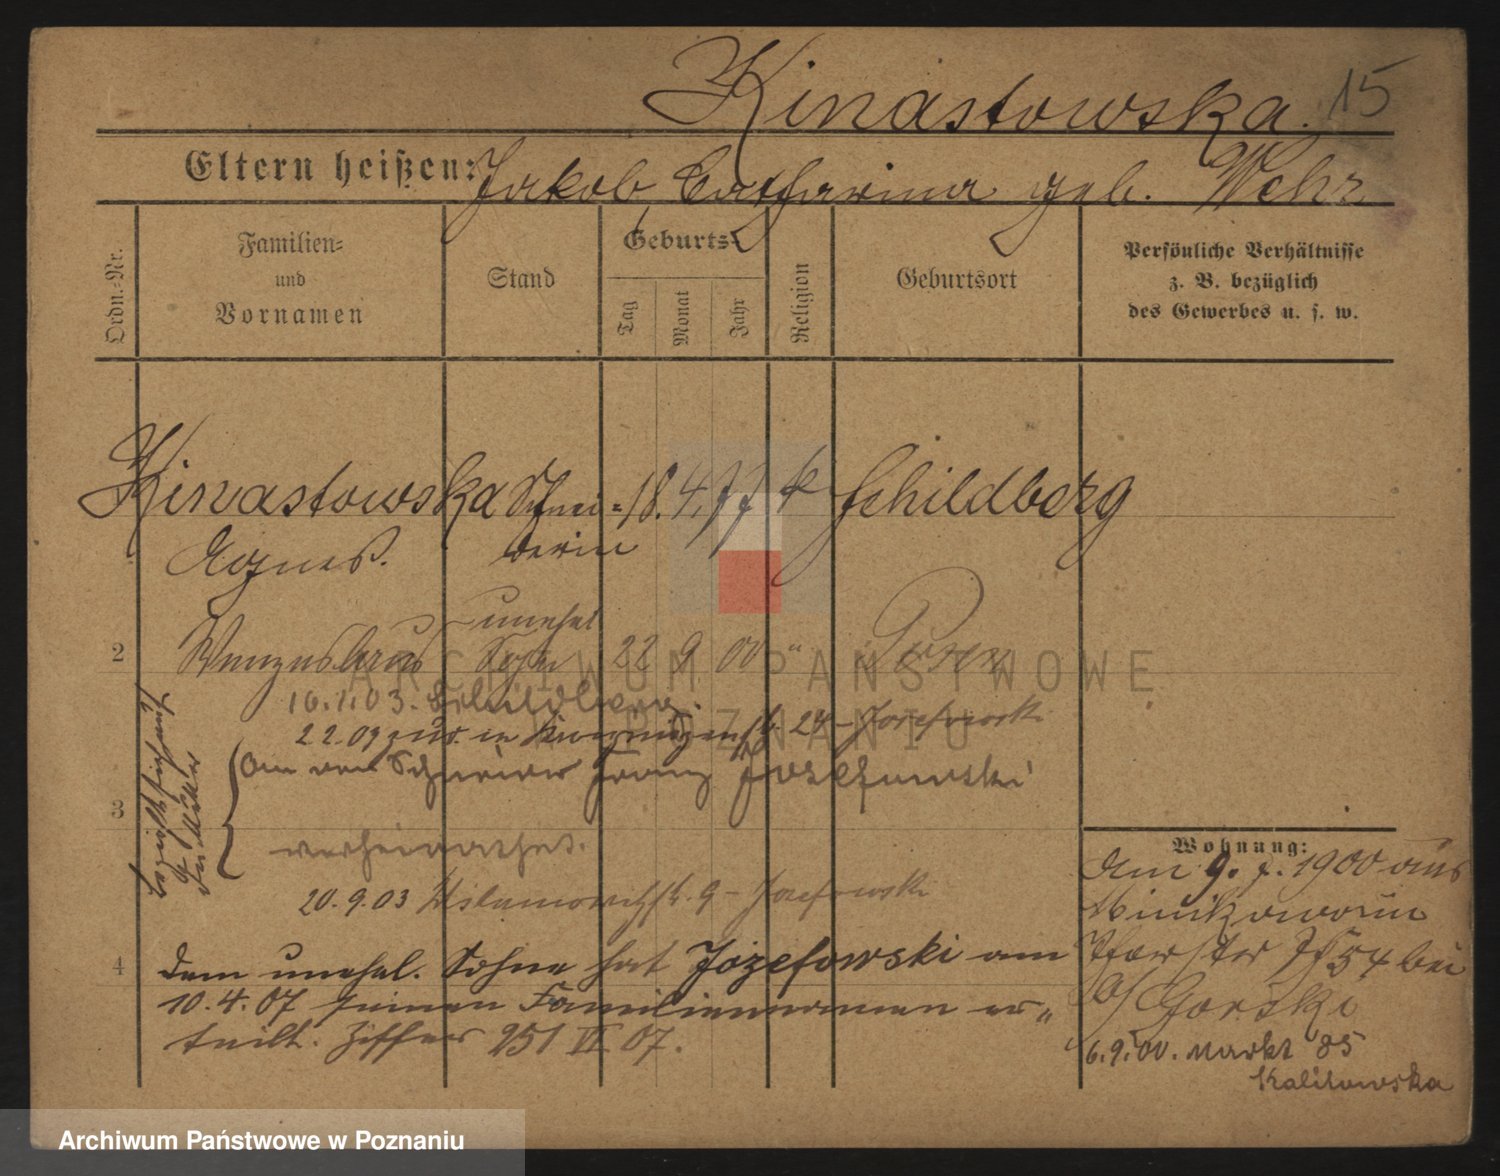 Kinastowska. 15
Eltern heißen: Jakob, Catharina geb. Wehr
Ordn.-Nr.
Familien-
und
Vornamen
Stand
Geburts-
Tag
Monat
Jahr
Religion
Geburtsort
Persönliche Verhältnisse
z. B. bezüglich
des Gewerbes u. s. w.
Kinastowska Schnei- 18. 4. 77 k Schildberg
Agnes. derin
unehel
2 Wenzeslaus Sohn 22 9 00 " Posen
ARCHIWUM PAŃSTWOWE
W POZNANIU
16.1.03. Schildberg.
22.09 zur. in 24 - Josefowski
3 An den Schneider Franz Josefowski
verheirathet.
20.9.03 9 - Josefowski
4 Dem unehel. Sohne hat Jozefowski am
10.4.07 seinen Familiennamen er-
teilt. Ziffer 251 VI 07.
Wohnung:
Am 9. 7. 1900 aus
54 bei
Gorski
6.9.00. Markt 85
Kalitowska
Archiwum Państwowe w Poznaniu